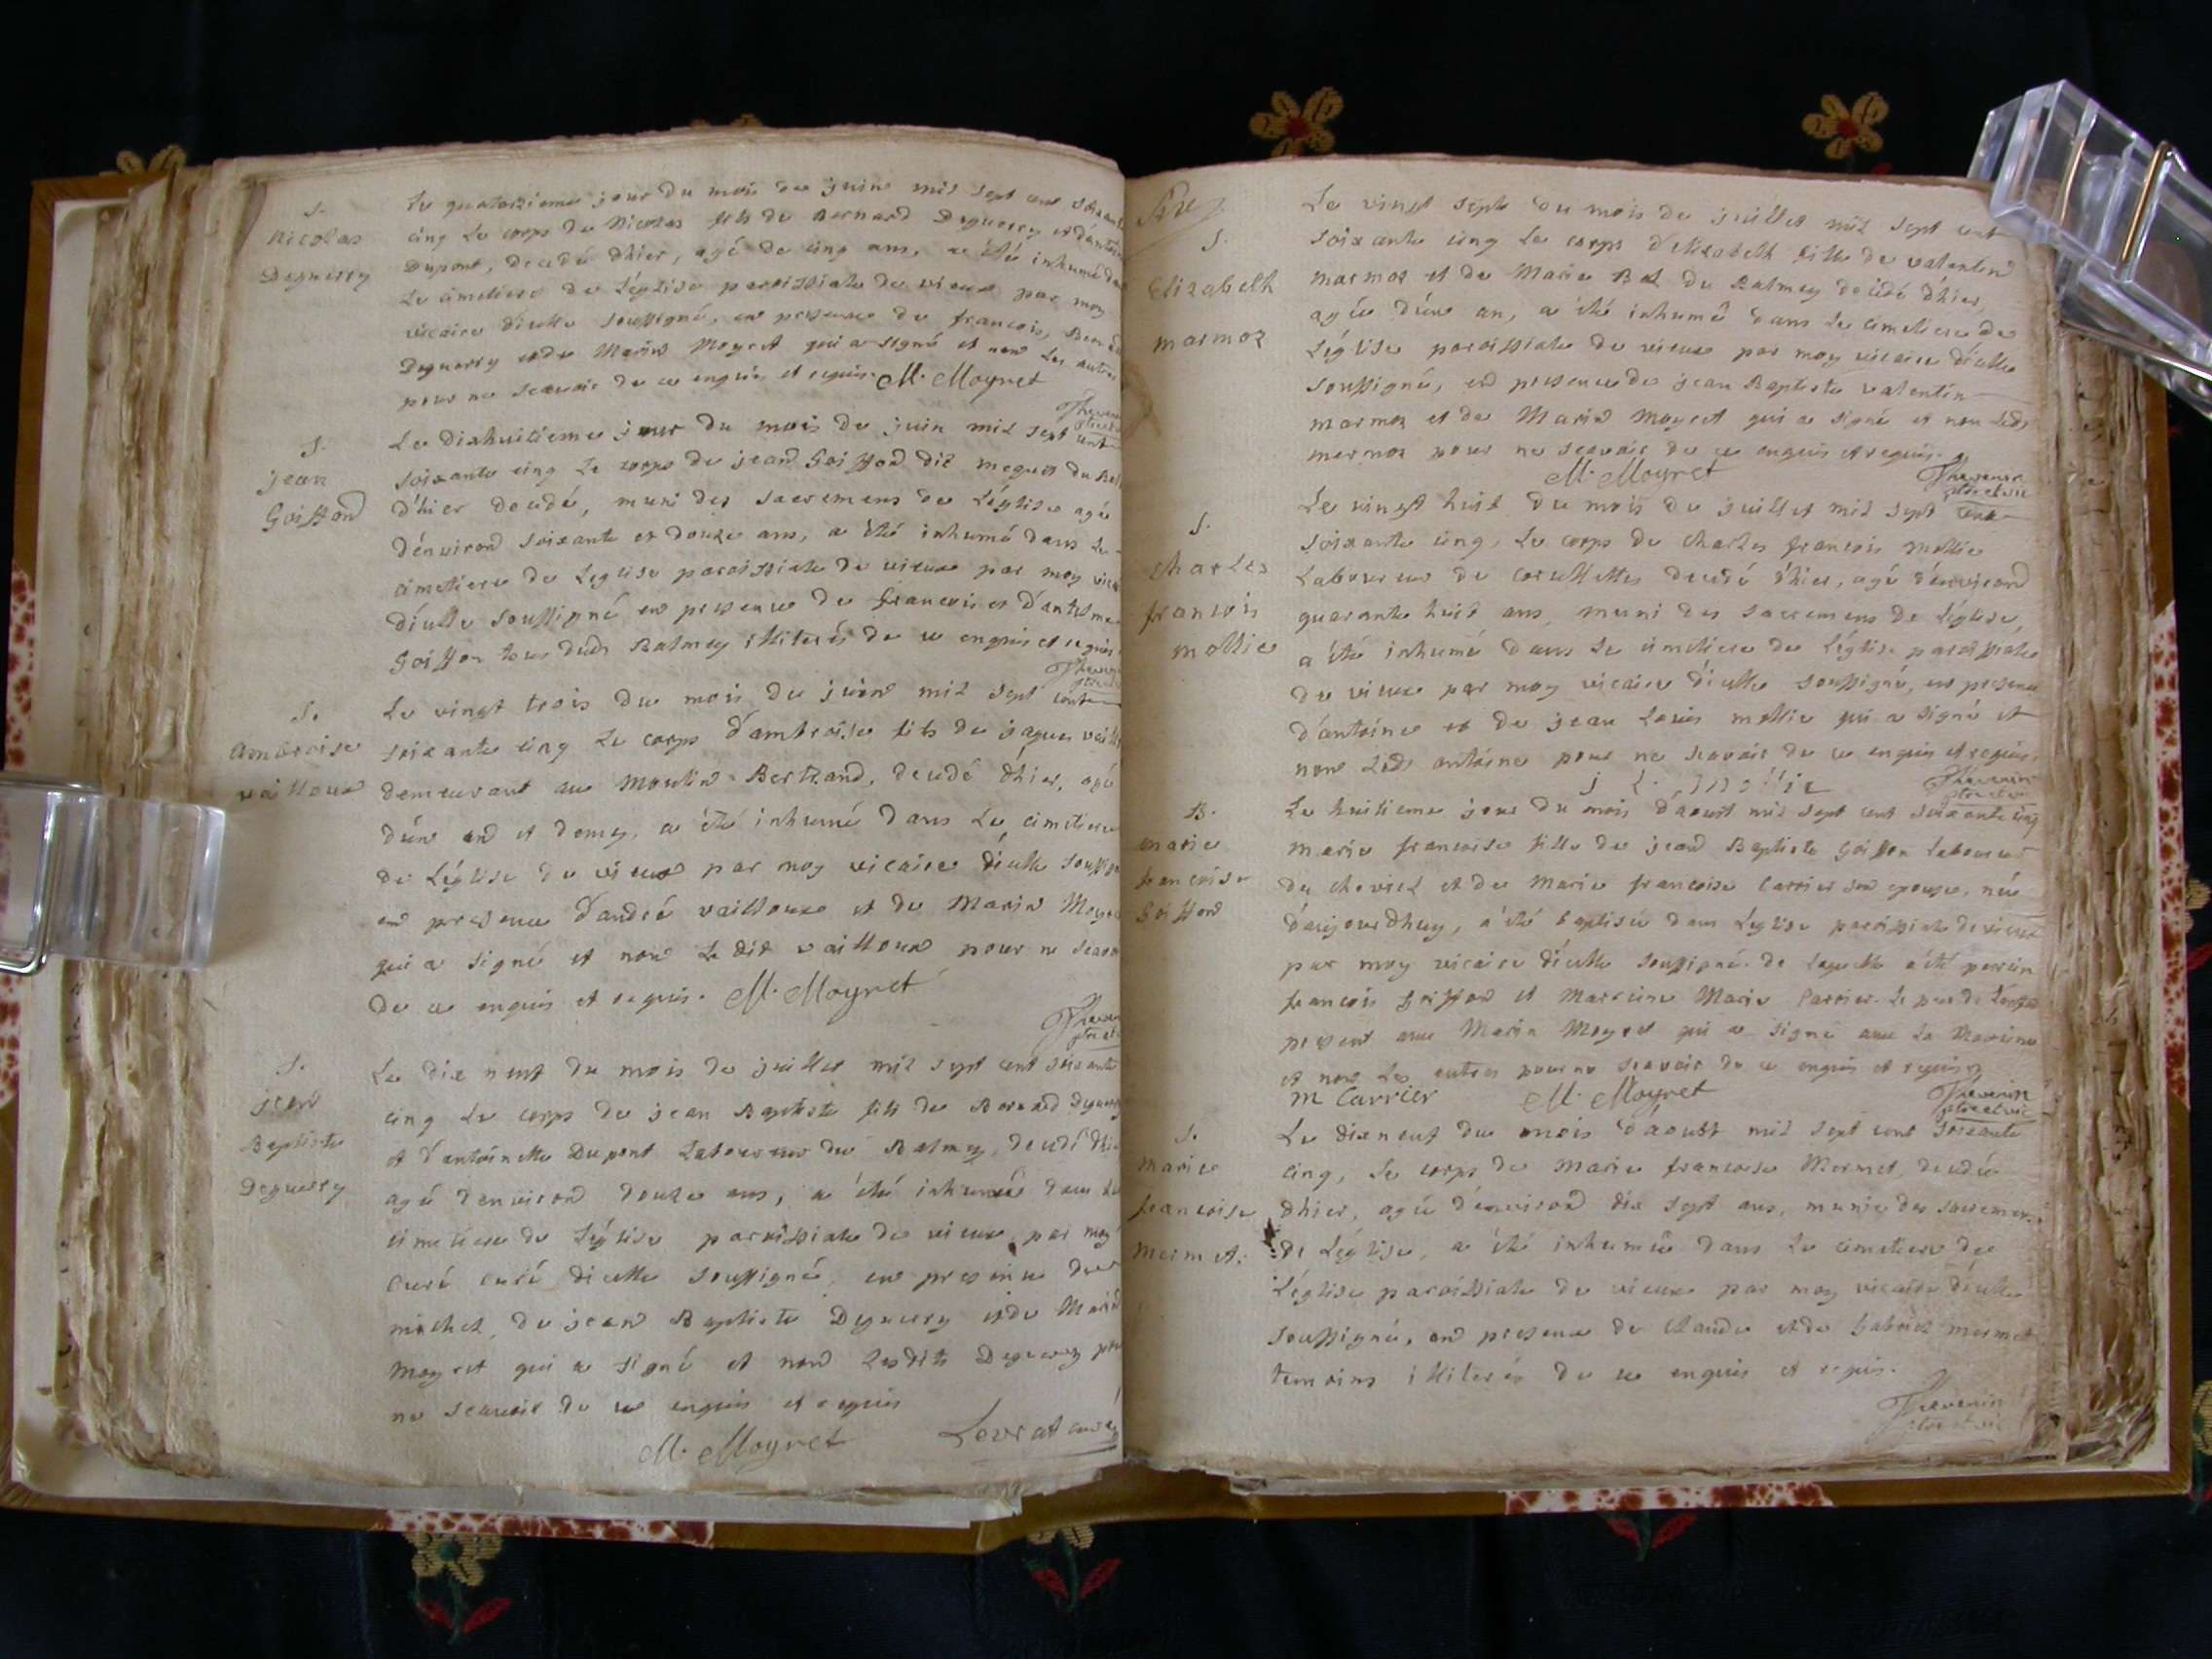 S.
nicolas
Deguerry
Le quatorzieme jour du mois de juin mil sept cent soixante
cinq le corps de Nicolas fils de Bernard Deguerry et d'antoin
Dupont, decedé d'hier, agé de cinq ans, a été inhumé dans
Le cimetiere de L'église paroissiale de vieux par moy
vicaire d'icelle soussigné, en presence de francois, Bernard
Deguerry et de Marin Moyret qui a signé et non les autres
pour ne scavoir de ce enquis et requis. M. Moyret
Thevenin
S.
jean
Goiffond
Le dixhuitieme jour du mois de juin mil sept cent
soixante cinq Le corps de jean Goiffond dit meguet du Bal
d'hier decedé, muni des sacremens de L'église agé
d'environ soixante et douze ans, a été inhumé dans le
cimetiere de Leglise paroissiale de vieux par moy vicai
d'icelle soussigné en presence de francois et d'antelme
Goiffon tous dudt Balmey illiterés de ce enquis et requis
Thevenin
S.
ambroise
vailloux
Le vingt trois du mois de juin mil sept cent
soixante cinq Le corps d'ambroise fils de jaques vaill
demeurant au Moulin Bertrand, decedé d'hier, agé
d'un an et demy, a été inhumé dans Le cimetiere
de L'église de vieux par moy vicaire d'icelle soussign
en presence d'andré vailloux et de Marin Moyret
qui a signé et non Le dit vailloux pour ne scavoi
de ce enquis et requis. M. Moyret
Thevenin
S.
jean
Baptiste
Deguerry
Le dix neuf du mois de juillet mil sept cent soixante
cinq Le corps de jean Baptiste fils de Bernard Deguerry
et d'antoinette Dupont Laboureur du Balmey, decedé d'hie
agé denviron douze ans, a été inhumé dans Le
cimetiere de L'église paroissiale de vieux par moy
curé curé d'icelle soussigné, en presence de
michel, de jean Baptiste Deguerry et de Marin
Moyret qui a signé et non Lesdits Deguerry pour
ne scavoir de ce enquis et requis
M. Moyret Levrat curé
S.
Elizabeth
marmoz
Le vingt sept du mois de juillet mil sept cent
soixante cinq Le corps d'elizabeth fille de valentin
marmoz et de Marie Bal du Balmey decedé d'hier,
agée d'un an, a été inhumé dans Le cimetiere de
L'église paroissiale de vieux par moy vicaire d'icelle
soussigné, en presence de jean Baptiste valentin
marmoz et de Marin Moyret qui a signé et non Ledt
mermoz pour ne scavoir de ce enquis et requis.
M. Moyret Thevenin
ptre et vic
S.
charles
francois
mollie
Le vingt huit du mois de juillet mil sept cent
soixante cinq, Le corps de charles francois mollie
Laboureur de corcellettes decedé d'hier, agé d'environ
quarante huit ans, muni des sacremens de L'église,
a été inhumé dans Le cimetiere de L'église paroissiale
de vieux par moy vicaire d'icelle soussigné, en presence
d'antoine et de jean Louis mollie qui a signé et
non Ledt antoine pour ne scavoir de ce enquis et requis.
j L. mollie Thevenin
ptre et vic
B.
marie
francoise
Goiffond
Le huitieme jour du mois d'aoust mil sept cent soixante cinq
marie francoise fille de jean Baptiste Goiffon Laboureur
du chevril et de Marie francoise Carrier son epouse, née
d'aujourdhuy, a été baptisée dans L'eglise paroissiale de vieux
par moy vicaire d'icelle soussigné. de Laquelle a été parrin
francois Goiffon et Marrine Marie Carrier. Le pere de L'enfant
present avec Marin Moyret qui a signé avec La Marrine
et non Les autres pour ne scavoir de ce enquis et requis
m Carrier M. Moyret Thevenin
ptre et vic
S.
marie
francoise
mermet.
Le dixneuf du mois d'aoust mil sept cent soixante
cinq, Le corps de Marie francoise Mermet, decedée
d'hier, agée d'environ dix sept ans, munie des sacremens
de L'église, a été inhumée dans Le cimetiere de
L'église paroissiale de vieux par moy vicaire d'icelle
soussigné, en presence de claude et de Gabriel mermet
temoins illiterés de ce enquis et requis.
Thevenin
ptre et vic